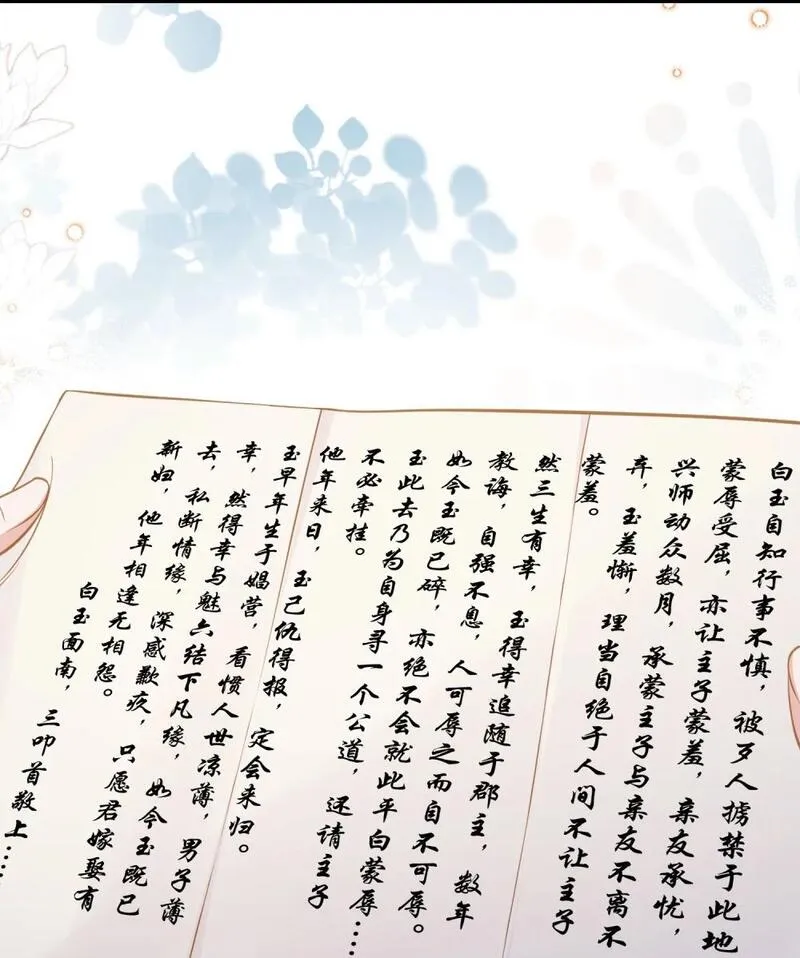 白玉自知行事不慎，被歹人掳禁于此地
蒙辱受屈，亦让主子蒙羞，亲友承忧，
兴师动众数月，承蒙主子与亲友不离不
弃，玉羞惭，理当自绝于人间不让主子
蒙羞。
然三生有幸，玉得幸追随于郡主，数年
教诲，自强不息，人可辱之而自不可辱。
如今玉既已碎，亦绝不会就此平白蒙辱……
玉此去乃为自身寻一个公道，还请主子
不必牵挂。
他年来日，玉己仇得报，定会来归。
玉早年生于娼营，看惯人世凉薄，男子薄
幸，然得幸与魅六结下凡缘，如今玉既已
去，私断情缘，深感歉疚，只愿君嫁娶有
新妇，他年相逢无相怨。
白玉面南，三叩首敬上……